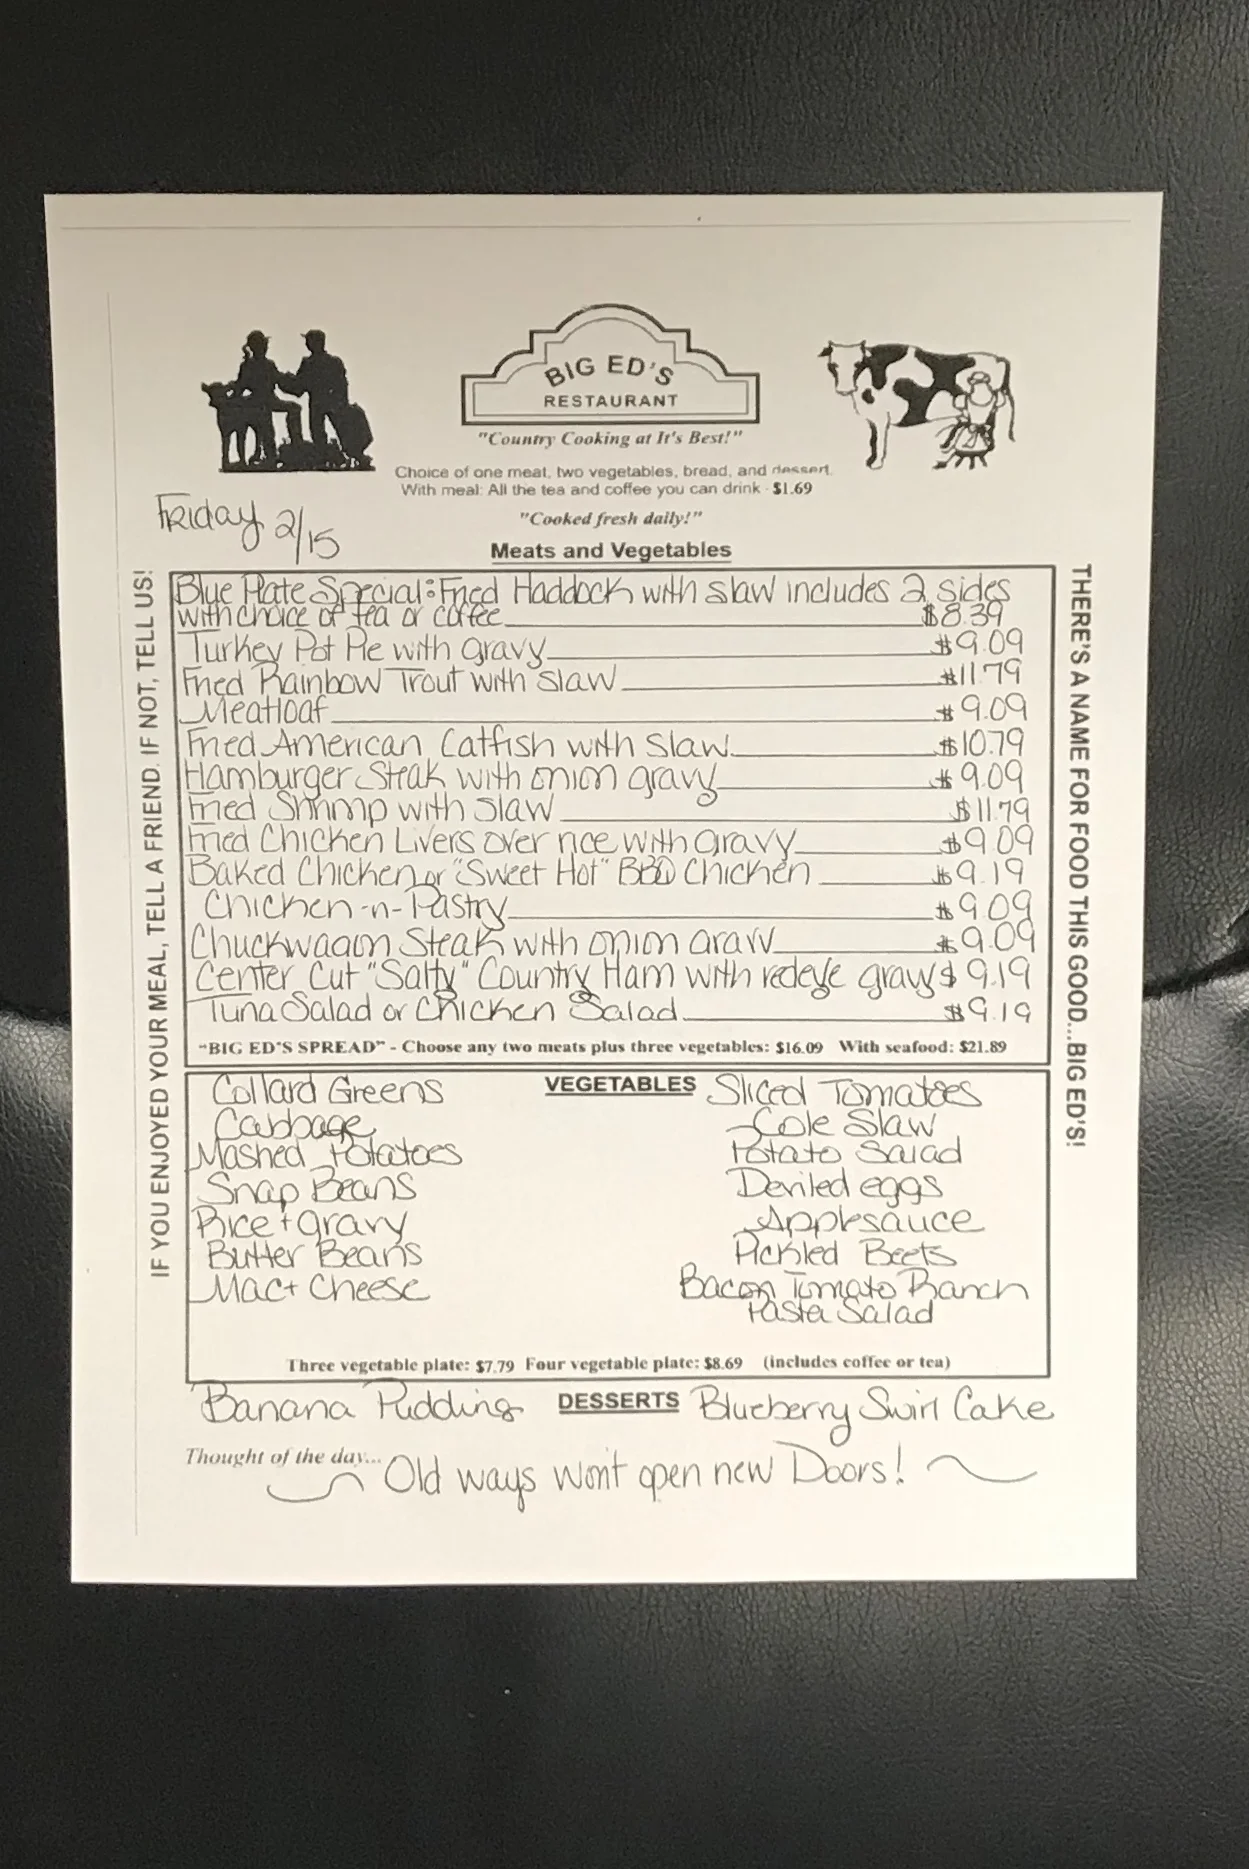 BIG ED'S
RESTAURANT
"Country Cooking at It's Best!"
Choice of one meat, two vegetables, bread, and dessert.
With meal: All the tea and coffee you can drink - $1.69
"Cooked fresh daily!"
Friday 2/15
Meats and Vegetables
Blue Plate Special: Fried Haddock with slaw includes 2 sides
with choice of tea or coffee $8.39
Turkey Pot Pie with gravy $9.09
Fried Rainbow Trout with slaw $11.79
Meatloaf $9.09
Fried American Catfish with slaw $10.79
Hamburger Steak with onion gravy $9.09
Fried Shrimp with slaw $11.79
Fried Chicken Livers over rice with gravy $9.09
Baked Chicken or "Sweet Hot" BBQ Chicken $9.19
Chicken-n-Pastry $9.09
Chuckwagon Steak with onion gravy $9.09
Center Cut "Salty" Country Ham with redeye gravy $9.19
Tuna Salad or Chicken Salad $9.19
"BIG ED'S SPREAD" - Choose any two meats plus three vegetables: $16.09 With seafood: $21.89
VEGETABLES
Collard Greens
Cabbage
Mashed Potatoes
Snap Beans
Rice + gravy
Butter Beans
Mac + Cheese
Sliced Tomatoes
Cole Slaw
Potato Salad
Deviled eggs
Applesauce
Pickled Beets
Bacon Tomato Ranch
Pasta Salad
Three vegetable plate: $7.79 Four vegetable plate: $8.69 (includes coffee or tea)
Banana Pudding DESSERTS Blueberry Swirl Cake
Thought of the day... Old ways won't open new Doors!
IF YOU ENJOYED YOUR MEAL, TELL A FRIEND. IF NOT, TELL US!
THERE'S A NAME FOR FOOD THIS GOOD...BIG ED'S!